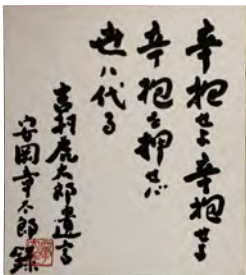 辛抱せよ辛抱せよ
辛抱を押せバ
世ハ代る
吉村虎太郎遺言
安岡章太郎録